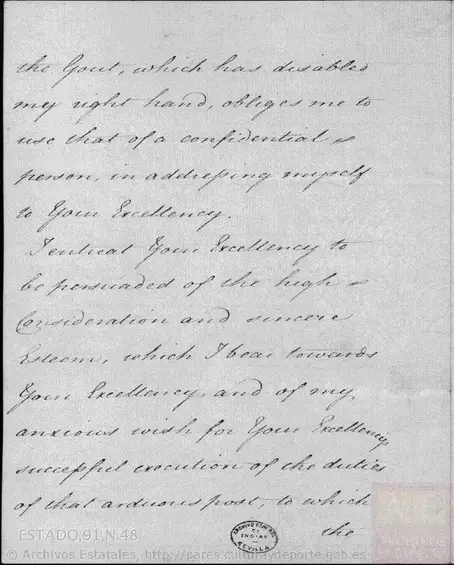 the Gout, which has disabled
my right hand, obliges me to
use that of a confidential
person, in addressing myself
to Your Excellency.
I entreat Your Excellency to
be persuaded of the high
Consideration and sincere
Esteem, which I bear towards
Your Excellency, and of my
anxious wish for Your Excellency
successful execution of the duties
of that arduous post, to which
the
ESTADO,91,N.48
ARCHIVO GENERAL
DE
INDIAS
SEVILLA
© Archivos Estatales, http://pares.culturaydeporte.gob.es